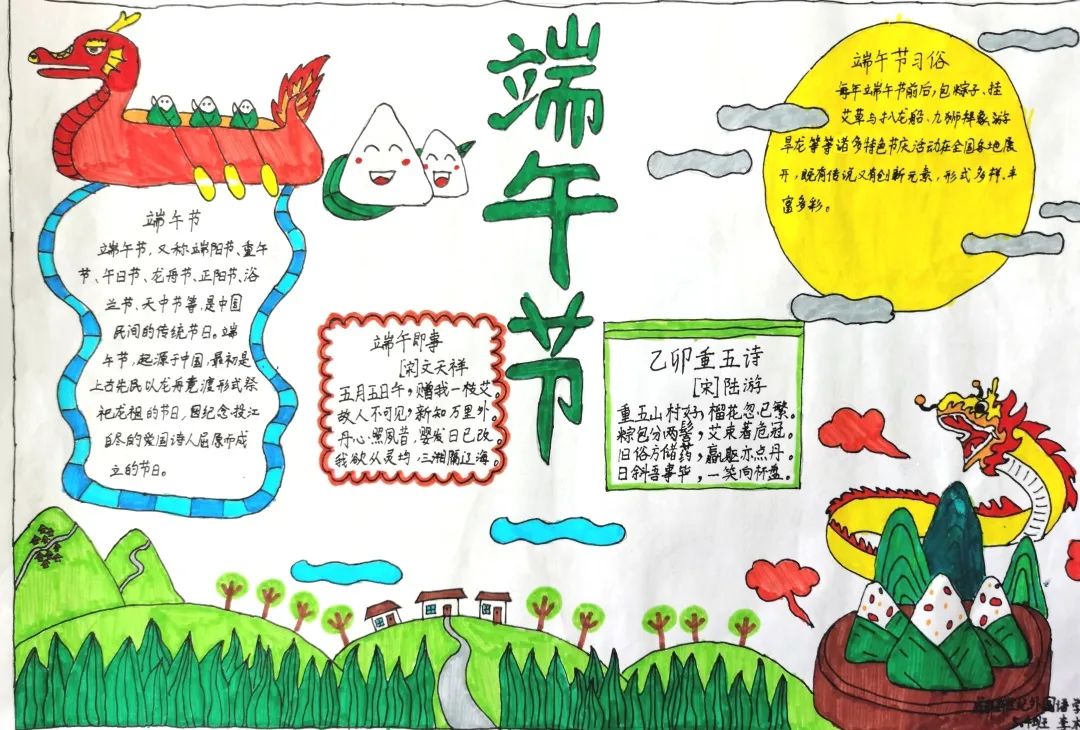 端午节
端午节
端午节，又称端阳节、重午
节、午日节、龙舟节、正阳节、浴
兰节、天中节等，是中国
民间的传统节日。端
午节，起源于中国，最初是
上古先民以龙舟竞渡形式祭
祀龙祖的节日，因纪念投江
自尽的爱国诗人屈原而成
立的节日。
端午即事
[宋]文天祥
五月五日午，赠我一枝艾。
故人不可见，新知万里外。
丹心照夙昔，鬓发日已改。
我欲从灵均，三湘隔辽海。
乙卯重五诗
[宋]陆游
重五山村好，榴花忽已繁。
粽包分两髻，艾束著危冠。
旧俗方储药，羸躯亦点丹。
日斜吾事毕，一笑向杯盘。
端午节习俗
每年端午节前后，包粽子、挂
艾草与扒龙船、九狮拜象、游
旱龙等等诸多特色节庆活动在全国各地展
开，既有传说又有创新元素，形式多样、丰
富多彩。
外国语学